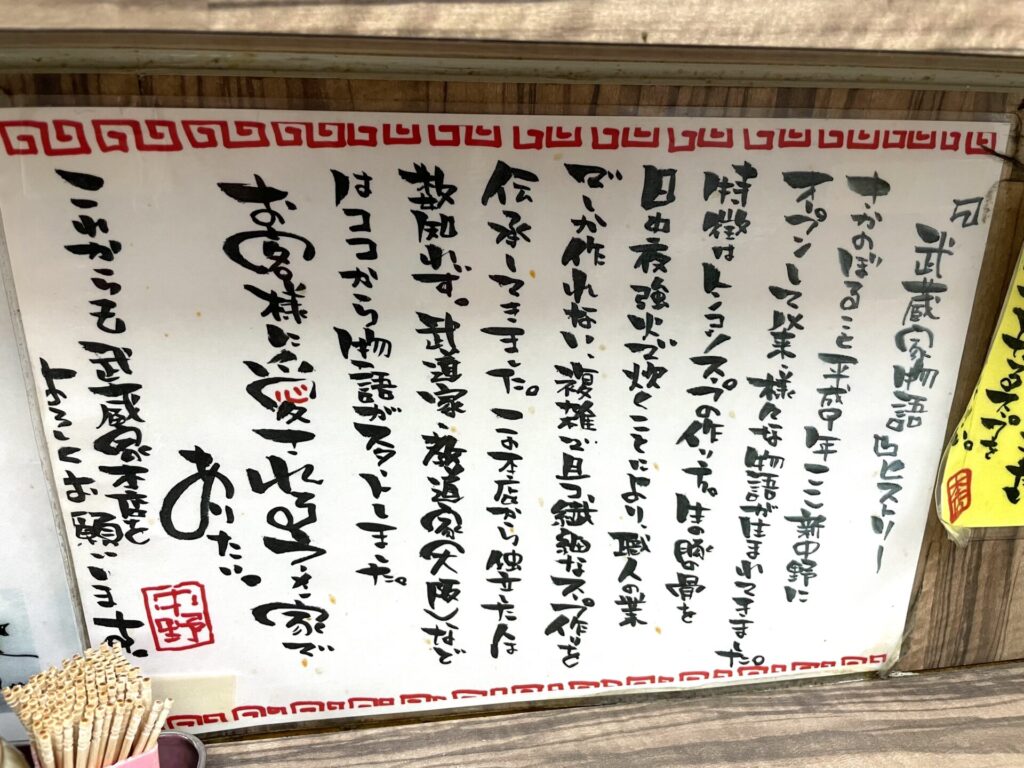 武蔵家物語 ヒストリー
さかのぼること平成9年ここ新中野に
オープンして以来、様々な物語が生まれてきました。
特徴はトンコツスープの作り方。生の豚の骨を
日の夜強火で炊くことにより、職人の業
でしか作れない、複雑で且つ繊細なスープ作りを
伝承してきました。この本店から独立した人は
数知れず。武道家・極道家(大阪)など
はココから物語がスタートしました。
お客様に愛されるラーメン家で
ありたい。
これからも武蔵家本店を
よろしくお願いします。
中野